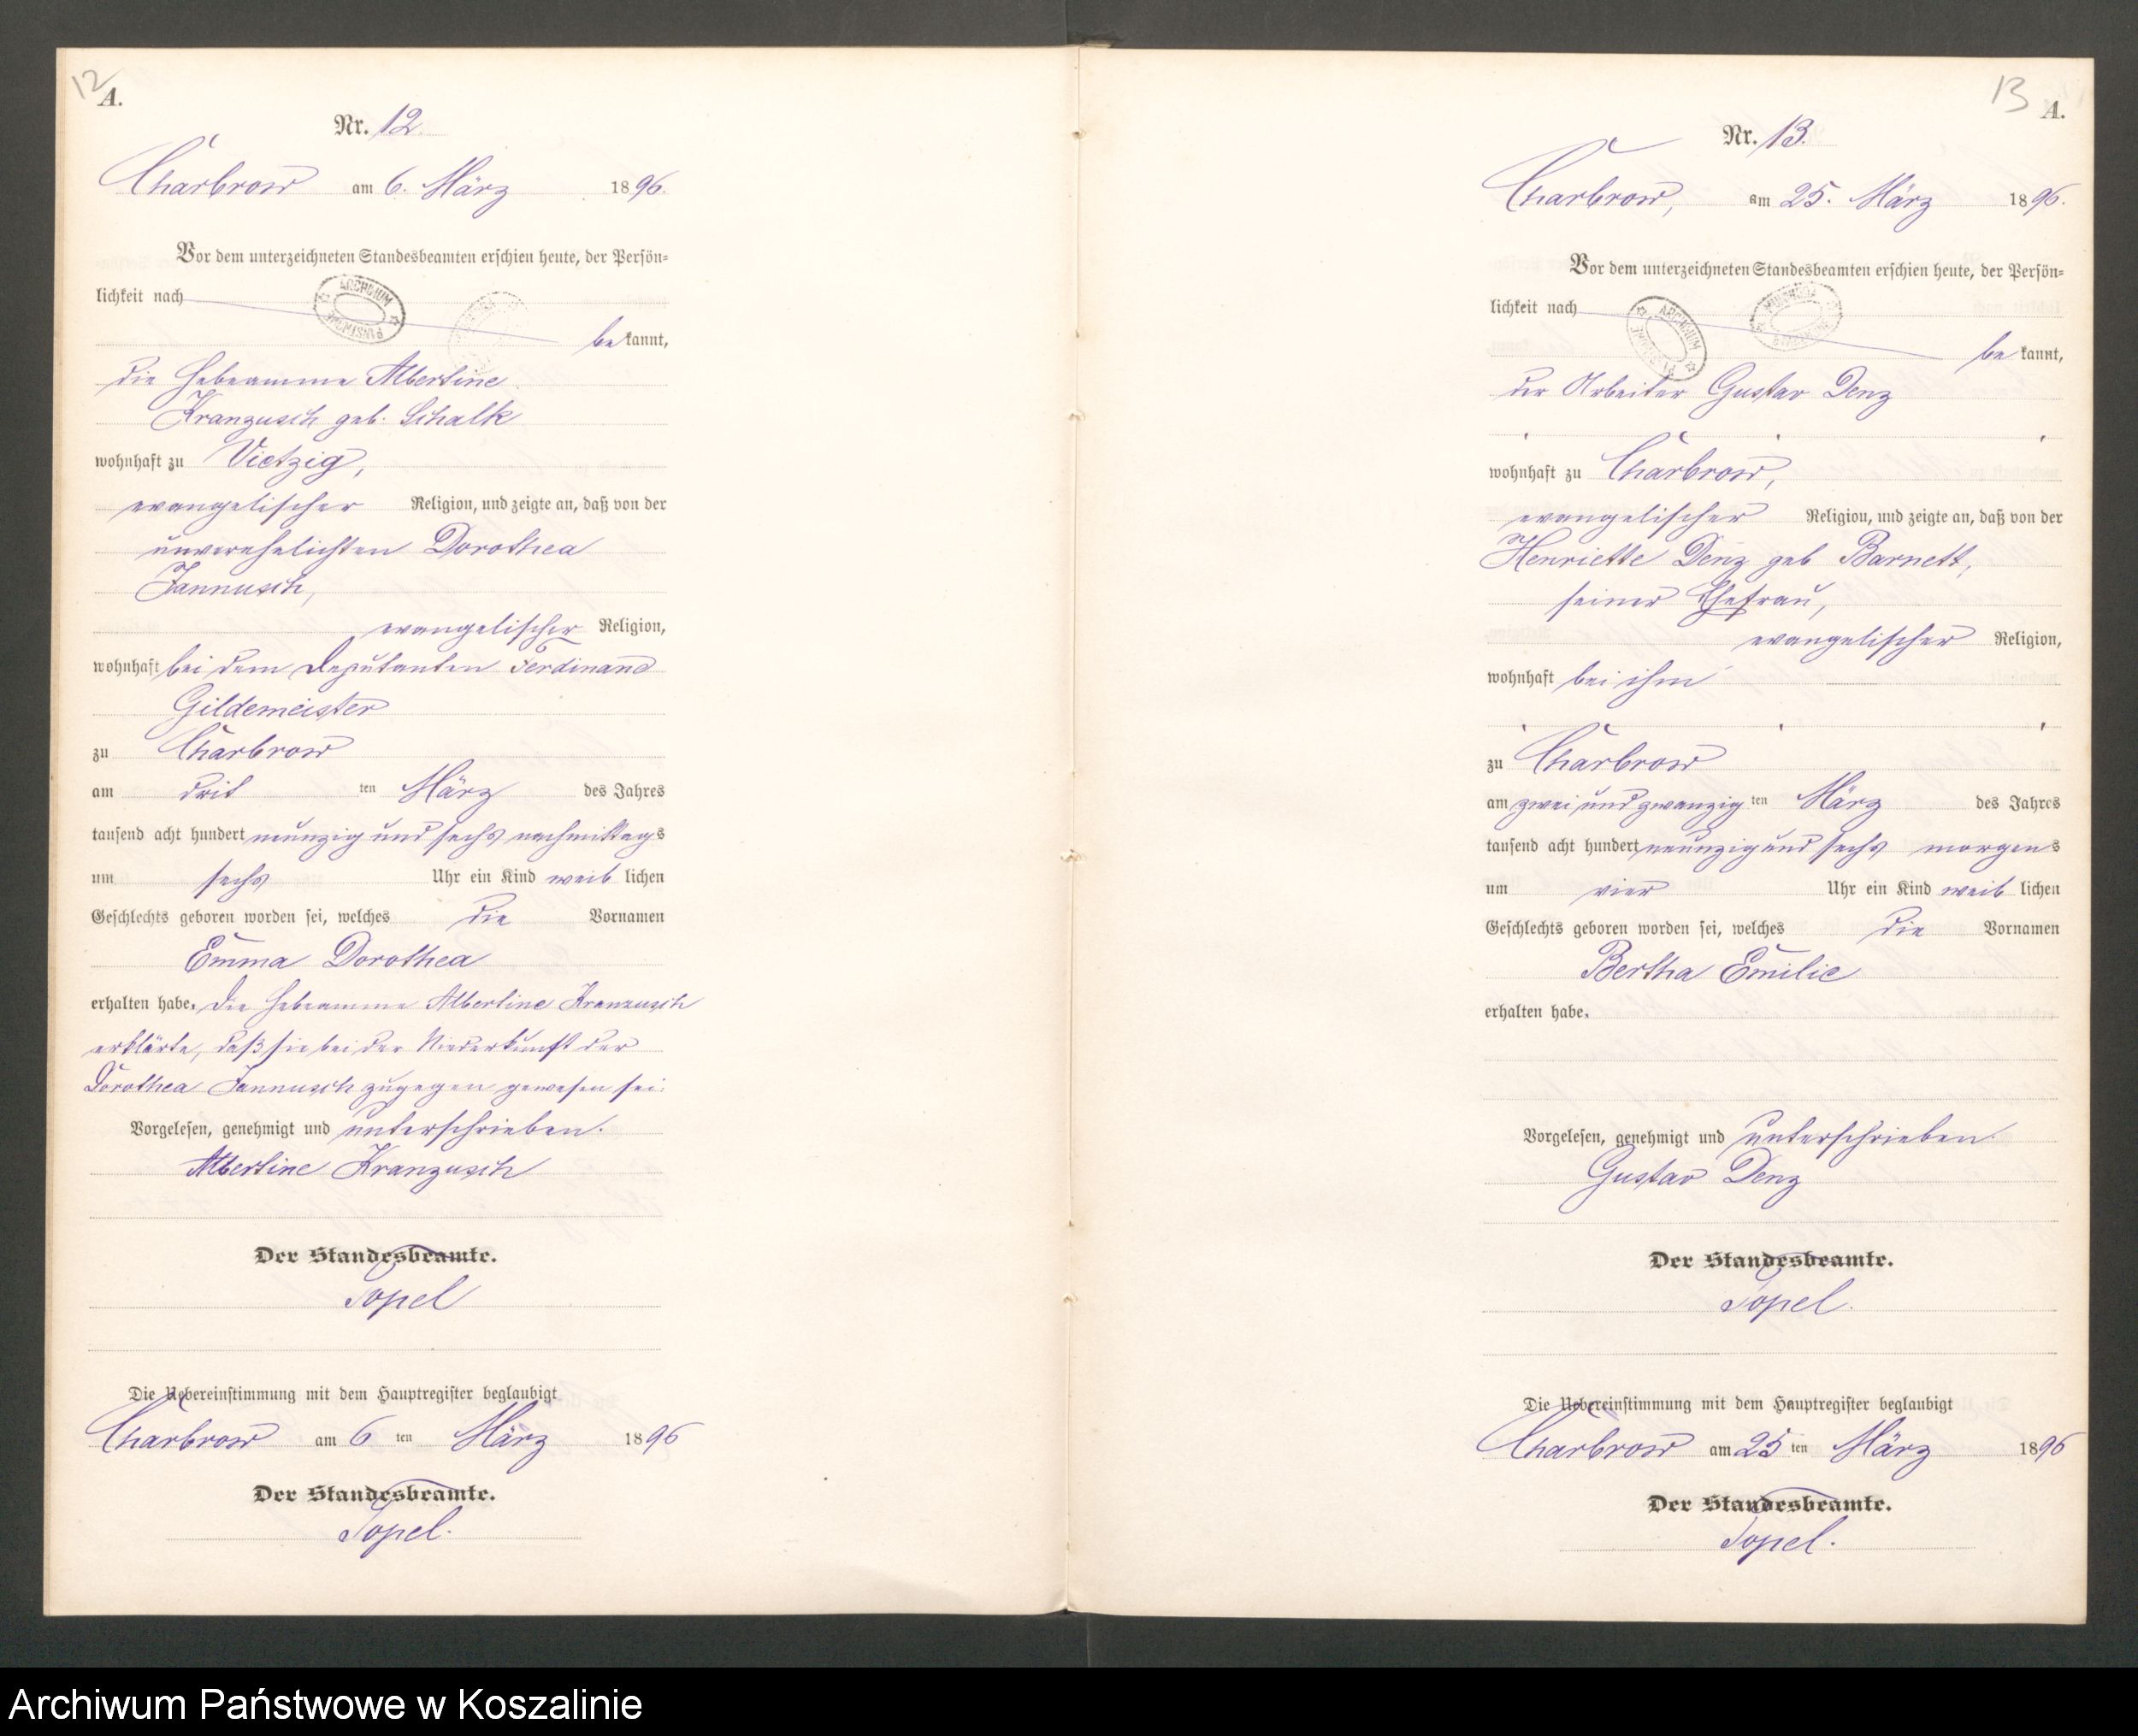 12
A.
Nr. 12.
Charbrow am 6. März 1896.
Vor dem unterzeichneten Standesbeamten erschien heute, der Persön=
lichkeit nach
bekannt,
die Hebeamme Albertine
Kranzusch geb. Schalk
wohnhaft zu Vietzig,
evangelischer Religion, und zeigte an, daß von der
unverehelichten Dorothea
Jannusch,
evangelischer Religion,
wohnhaft bei dem Deputanten Ferdinand
Gildemeister
zu Charbrow
am drit ten März des Jahres
tausend acht hundert neunzig und sechs nachmittags
um sechs Uhr ein Kind weiblichen
Geschlechts geboren worden sei, welches die Vornamen
Emma Dorothea
erhalten habe. Die Hebeamme Albertine Kranzusch
erklärte, daß sie bei der Niederkunft der
Dorothea Jannusch zugegen gewesen sei.
Vorgelesen, genehmigt und unterschrieben.
Albertine Kranzusch
Der Standesbeamte.
Topel
Die Uebereinstimmung mit dem Hauptregister beglaubigt
Charbrow am 6 ten März 1896
Der Standesbeamte.
Topel.
13
A.
Nr. 13.
Charbrow, am 25. März 1896.
Vor dem unterzeichneten Standesbeamten erschien heute, der Persön=
lichkeit nach
bekannt,
der Arbeiter Gustav Denz
wohnhaft zu Charbrow,
evangelischer Religion, und zeigte an, daß von der
Henriette Denz geb Barnett,
seiner Ehefrau,
evangelischer Religion,
wohnhaft bei ihm
zu Charbrow
am zwei und zwanzig ten März des Jahres
tausend acht hundert neunzig und sechs morgens
um vier Uhr ein Kind weiblichen
Geschlechts geboren worden sei, welches die Vornamen
Bertha Emilie
erhalten habe.
Vorgelesen, genehmigt und unterschrieben.
Gustav Denz
Der Standesbeamte.
Topel.
Die Uebereinstimmung mit dem Hauptregister beglaubigt
Charbrow am 25 ten März 1896
Der Standesbeamte.
Topel.
Archiwum Państwowe w Koszalinie